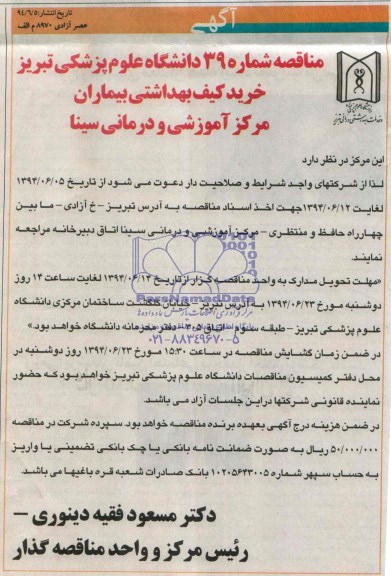 تاریخ انتشار: ۹۴/۶/۵
عصر آزادی ۸۹۷۰ م الف
آگهی
مناقصه شماره ۳۹ دانشگاه علوم پزشکی تبریز
خرید کیف بهداشتی بیماران
مرکز آموزشی و درمانی سینا
این مرکز در نظر دارد
لذا از شرکتهای واجد شرایط و صلاحیت دار دعوت می شود از تاریخ ۱۳۹۴/۰۶/۰۵
لغایت ۱۳۹۴/۰۶/۱۲ جهت اخذ اسناد مناقصه به آدرس تبریز - خ آزادی - ما بین
چهارراه حافظ و منتظری - مرکز آموزشی و درمانی سینا اتاق دبیرخانه مراجعه
نمایند.
«مهلت تحویل مدارک به واحد مناقصه گزار از تاریخ ۱۳۹۴/۰۶/۱۴ لغایت ساعت ۱۴ روز
دوشنبه مورخ ۱۳۹۴/۰۶/۲۳ به آدرس تبریز - خیابان گلگشت ساختمان مرکزی دانشگاه
علوم پزشکی تبریز - طبقه سوم - اتاق ۳۰۵ - دفتر محرمانه دانشگاه خواهد بود»
در ضمن زمان گشایش مناقصه در ساعت ۱۵:۳۰ مورخ ۱۳۹۴/۰۶/۲۳ روز دوشنبه در
محل دفتر کمیسیون مناقصات دانشگاه علوم پزشکی تبریز خواهد بود که حضور
نماینده قانونی شرکتها در این جلسات آزاد می باشد.
در ضمن هزینه درج آگهی بعهده برنده مناقصه خواهد بود. سپرده شرکت در مناقصه
۵۰/۰۰۰/۰۰۰ ریال به صورت ضمانت نامه بانکی یا چک بانکی تضمینی یا واریز
به حساب سپهر شماره ۱۰۲۰۵۶۴۳۰۰۵ بانک صادرات شعبه قره باغیها می باشد.
دکتر مسعود فقیه دینوری -
رئیس مرکز و واحد مناقصه گذار
ParsNamadData
۰۲۱-۸۸۳۴۹۶۷۰-۵